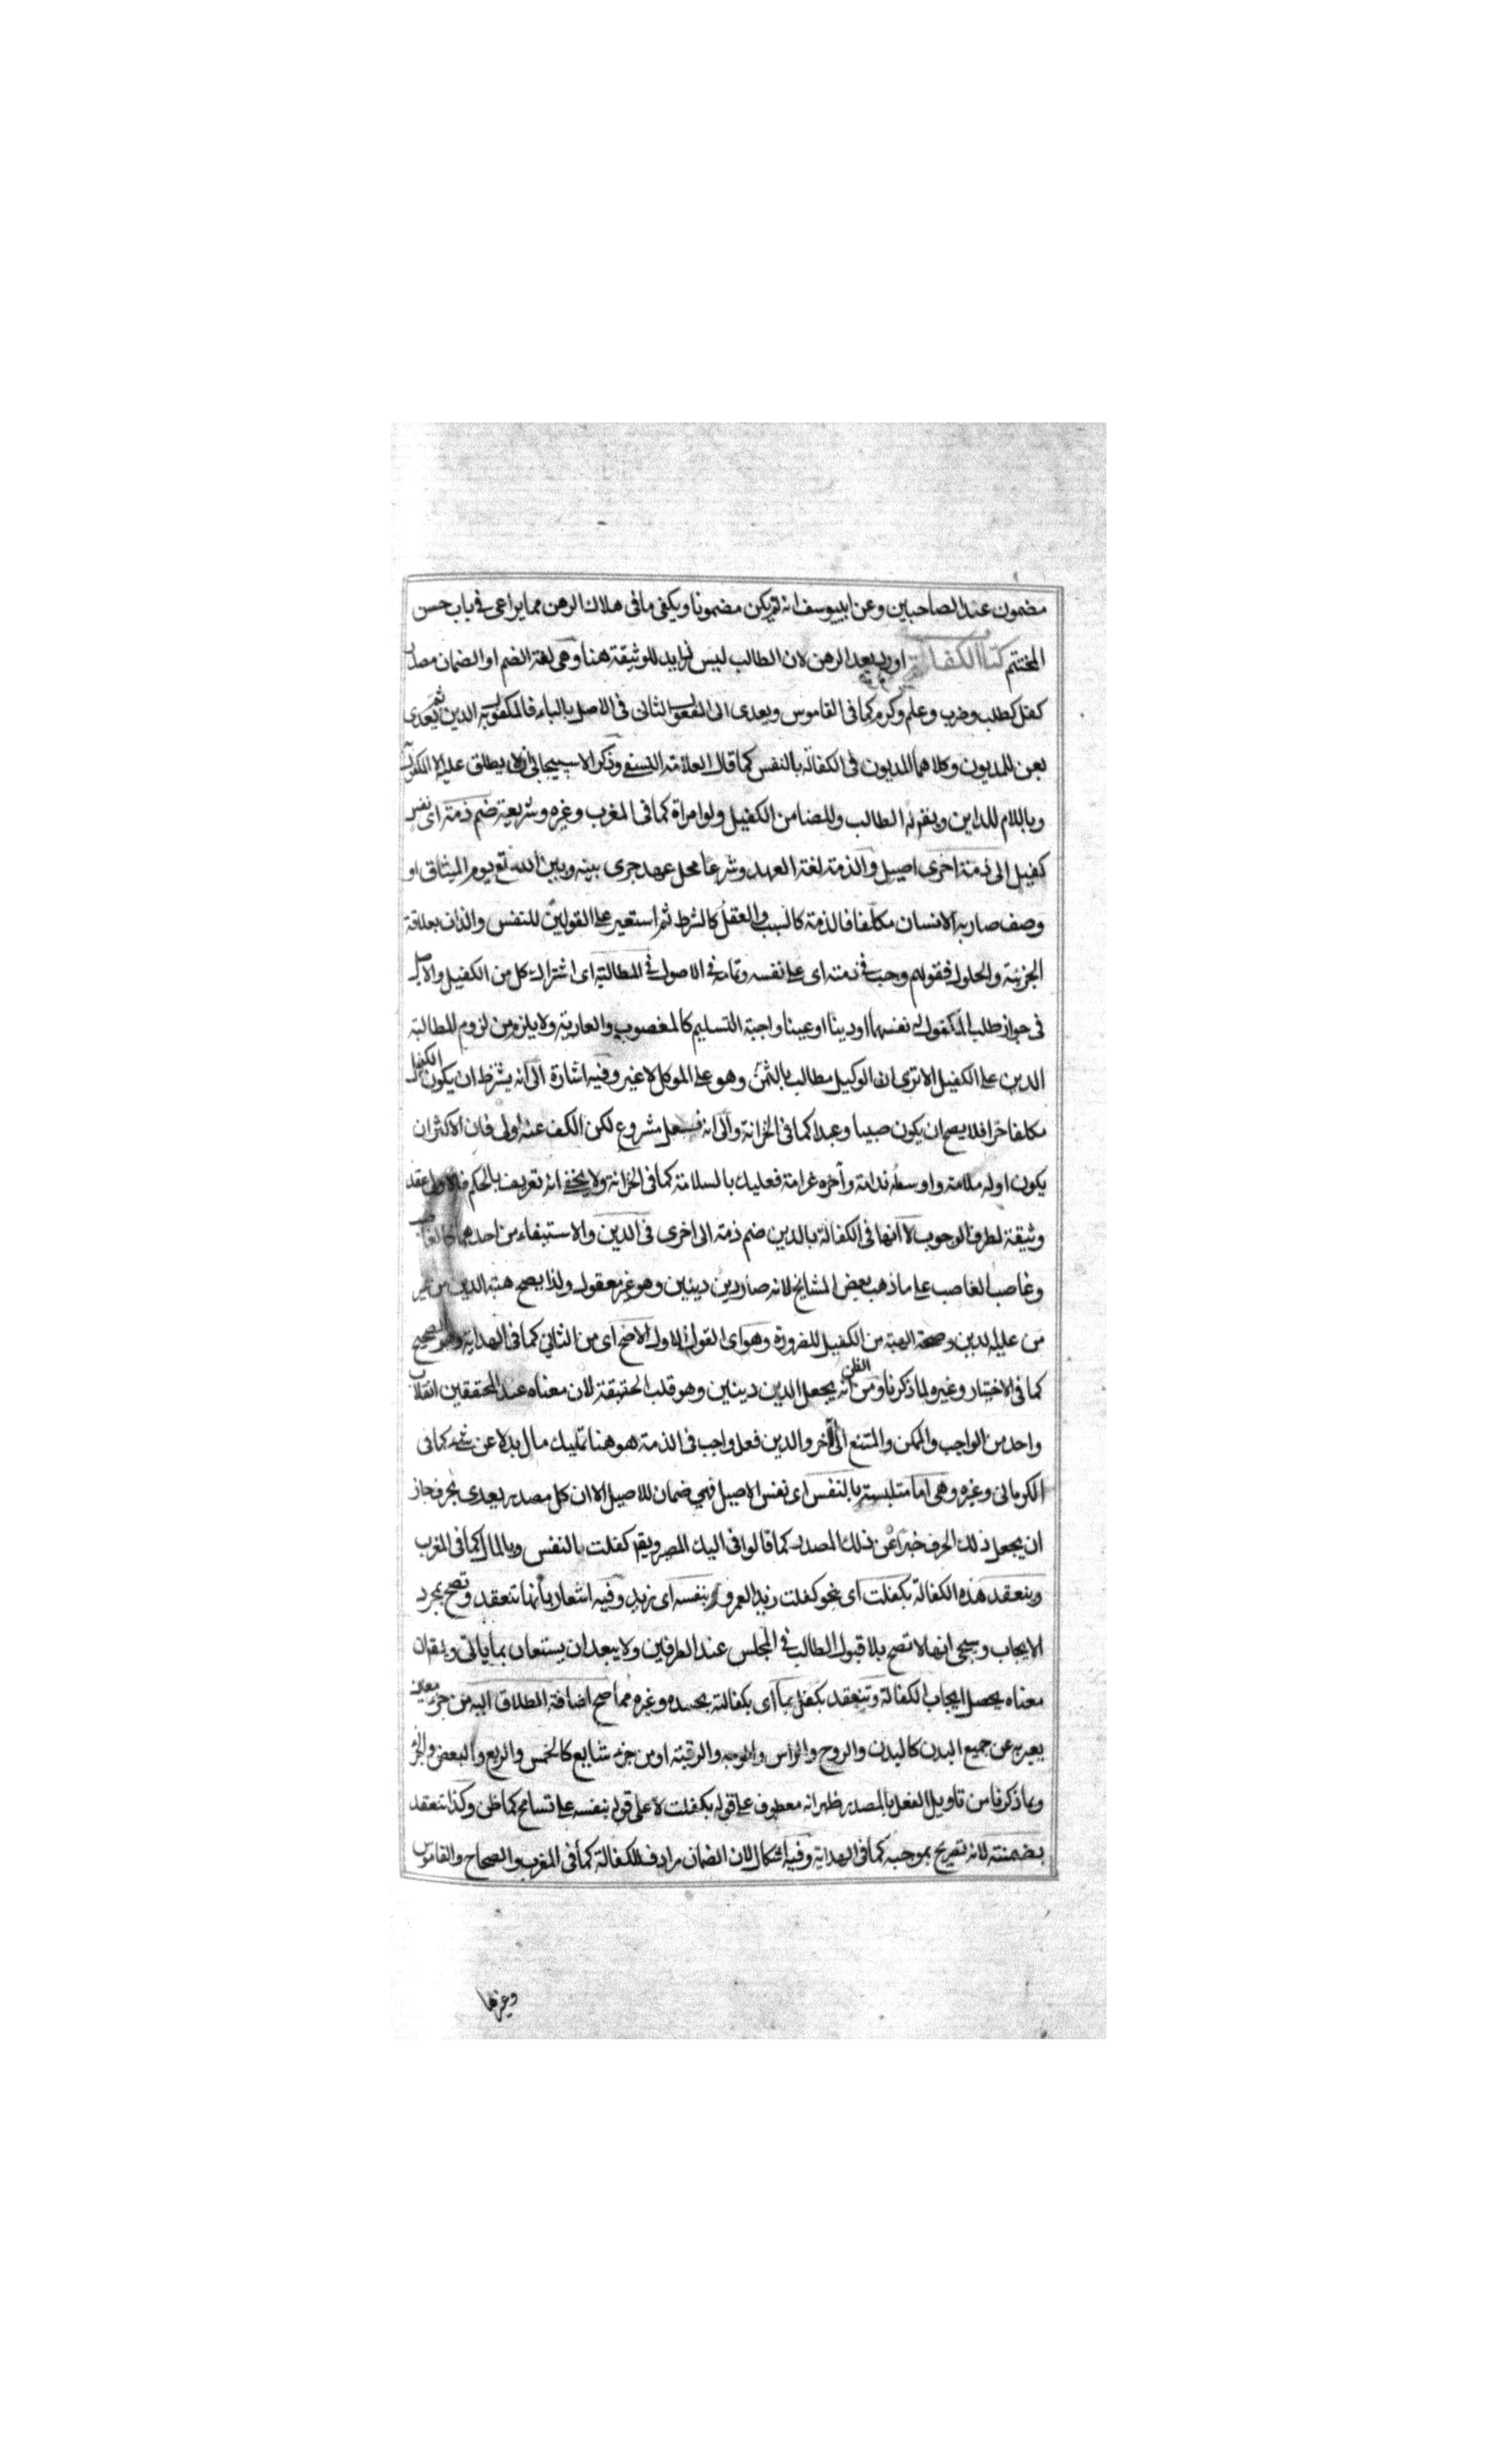 مضمون عند الصاحبين وعن ابييوسف انه لم يكن مضمونا ويكفى مافى هلاك الرهن مما يراعى فى باب حسن
المختتم كتاب الكفالة اورد بعد الرهن لان الطالب ليس لزايد للوثيقة هنا وهى لغة الضم او الضمان مصدر
كفل كطلب وضرب وعلم وكرم كما فى القاموس ويعدى الى المفعول الثانى فى الاصل بالباء فالمكفول به الدين ثم يعدى
بعن للمديون وكلاهما المديون فى الكفالة بالنفس كما قال العلامة النسفى وذكر الاسبيجابى انه لا يطلق عليه الا المكفول به
وباللام للداين ويقم له الطالب وللضامن الكفيل ولو امراة كما فى المغرب وغيره وشريعة ضم ذمة اى نفس
كفيل الى ذمة اخرى اصيل والذمة لغة العهد وشرعا محل عهد جرى بينه وبين الله تع يوم الميثاق او
وصف صار به الانسان مكلفا فالذمة كالسبب والعقل كالشرط ثم استعير على القولين للنفس والذات بعلاقة
الجزئية والحلول فقولهم وجب فى ذمته اى على نفسه وتمامه فى الاصول فى المطالبة اى اشتراك كل من الكفيل والاصيل
فى جواز طلب المكفول له نفسهما او دينا او عينا واجبة التسليم كالمغصوب والعارية ولا يلزم من لزوم المطالبة
الدين على الكفيل الا ترى ان الوكيل مطالب بالثمن وهو على الموكل لا غير وفيه اشارة الى انه يشترط ان يكون الكفيل
مكلفا حرا فلا يصح ان يكون صبيا وعبدا كما فى الخزانة والى انه فعل مشروع لكن الكف عنه اولى فان الاكثر ان
يكون اوله ملامة واوسطه ندامة وآخره غرامة فعليك بالسلامة كما فى الخزانة ولا يخفى انه تعريف بالحكم فالاولى عقد
وثيقة لطرف الوجوب لا انها فى الكفالة بالدين ضم ذمة الى اخرى فى الدين والاستيفاء من احدهما كالغاصب
وغاصب الغاصب على ما ذهب بعض المشايخ لانه صار دين دينين وهو غير معقول ولذا يصح هبة الدين من غير
من عليه الدين وصحة الهبة من الكفيل للضرورة وهو اى القول الاول الاصح اى من الثانى كما فى الهداية وهو الصحيح
كما فى الاختيار وغيره لما ذكرنا ومن الظن انه يجعل الدين دينين وهو قلب الحقيقة لان معناه عند المحققين انقلاب
واحد من الواجب والممكن والممتنع الى الآخر والدين فعل واجب فى الذمة هو هنا تمليك مال بدلا عن شىء كما فى
الكرمانى وغيره وهى اما متلبسة بالنفس اى نفس الاصيل فهى ضمان للاصيل الا ان كل مصدر يعدى بحرف جاز
ان يجعل ذلك الحرف خبرا عن ذلك المصدر كما قالوا فى اليك المصير ويقم كفلت بالنفس وبالمال كما فى المغرب
وينعقد هذه الكفالة بكفلت اى نحو كفلت زيدا لعمرو بنفسه اى زيد وفيه اشعار بانها تنعقد وتصح بمجرد
الايجاب وسيجى انها لا تصح بلا قبول الطالب فى المجلس عند الطرفين ولا يبعد ان يستعان بما ياتى ويقم ان
معناه يحصل ايجاب الكفالة وتنعقد بكفل بما اى بكفالته بجسده وغيره مما صح اضافة الطلاق اليه من جزء معين
يعبر به عن جميع البدن كالبدن والروح والراس والوجه والرقبة او من جزء شايع كالخمس والربع والبعض والجزء
وبما ذكرنا من تاويل الفعل بالمصدر ظهر انه معطوف على قوله بكفلت لا على قوله بنفسه على تسامح كما ظن وكذا تنعقد
بضمنته لانه تصريح بموجبه كما فى الهداية وفيه اشكال لان الضمان مرادف للكفالة كما فى المغرب والصحاح والقاموس
وغيرها